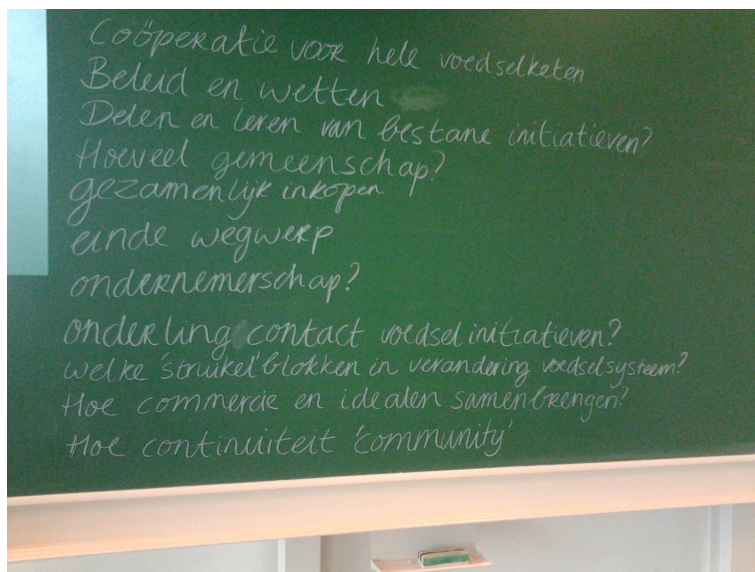 Coöperatie voor hele voedselketen
Beleid en wetten
Delen en leren van bestane initiatieven?
Hoeveel gemeenschap?
gezamenlijk inkopen
einde wegwerp
ondernemerschap?
onderling contact voedselinitiatieven?
welke 'struikel' blokken in verandering voedselsysteem?
Hoe commercie en idealen samenbrengen?
Hoe continuiteit 'community'